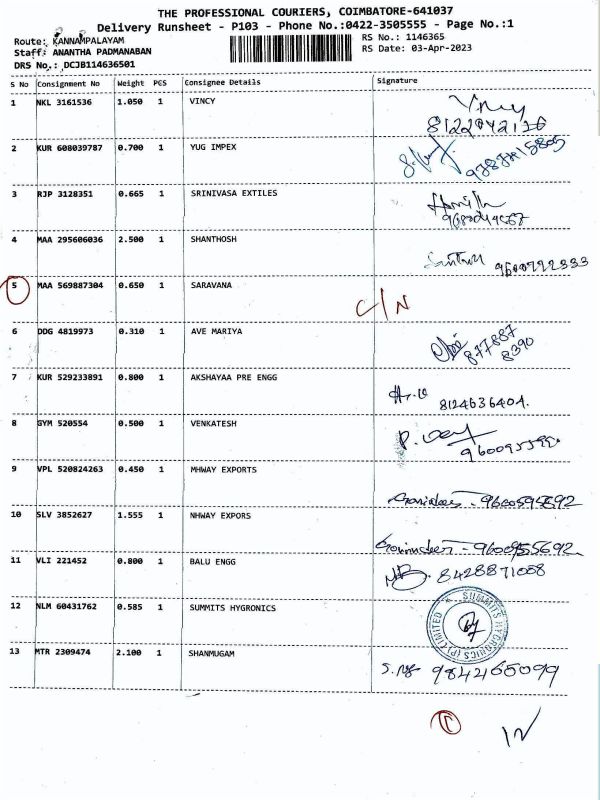 THE PROFESSIONAL COURIERS, COIMBATORE-641037
Delivery Runsheet - P103 - Phone No.:0422-3505555 - Page No.:1
Route: KANNAMPALAYAM RS No.: 1146365
Staff: ANANTHA PADMANABAN RS Date: 03-Apr-2023
DRS No.: DCJB114636501
S No Consignment No Weight PCS Consignee Details Signature
1 NKL 3161536 1.050 1 VINCY Vincy
8122042120
2 KUR 608039787 0.700 1 YUG IMPEX
3 RJP 3128351 0.665 1 SRINIVASA EXTILES
4 MAA 295606036 2.500 1 SHANTHOSH
5 MAA 569887304 0.650 1 SARAVANA C/N
6 DDG 4819973 0.310 1 AVE MARIYA 877887
8390
7 KUR 529233891 0.800 1 AKSHAYAA PRE ENGG 8124636404.
8 GYM 520554 0.500 1 VENKATESH
9 VPL 520824263 0.450 1 MHWAY EXPORTS
10 SLV 3852627 1.555 1 NHWAY EXPORS
11 VLI 221452 0.800 1 BALU ENGG 8428871008
12 NLM 60431762 0.585 1 SUMMITS HYGRONICS SUMMITS HYGRONICS (P) LIMITED
13 MTR 2309474 2.100 1 SHANMUGAM 9842465099